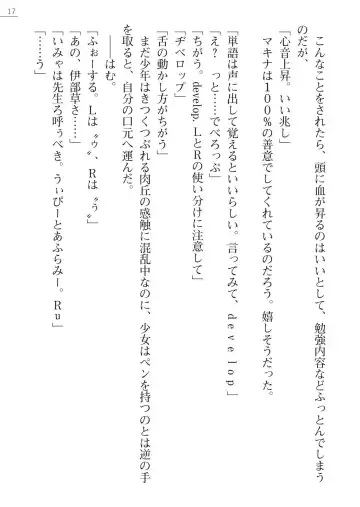 17
こんなことをされたら、頭に血が昇るのはいいとして、勉強内容などふっとんでしまう
のだが、
マキナは100％の善意でしてくれているのだろう。嬉しそうだった。
「心音上昇。いい兆し」
「単語は声に出して覚えるといいらしい。言ってみて、develop」
「え？　っと……でべろっぷ」
「舌の動かし方がちがう」
「ヂベロップ」
「ちがう。develop. LとRの使い分けに注意して」
まだ少年はきつくつぶれる肉丘の感触に混乱中なのに、少女はペンを持つのとは逆の手
を取ると、自分の口元へ運んだ。
――はむ。
「ふぉーする。Lは〝ゥ〟、Rは〝ぅ〟」
「あの、伊部草さ……」
「いみゃは先生ろ呼ぅべき。うぃぴーとあふらみー。Ru」
「……う」